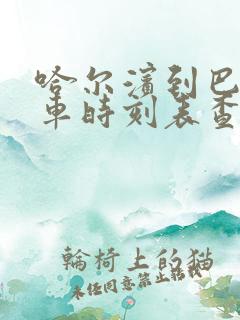 哈尔滨到巴
车时刻表查
輪椅上的猫
未经同意禁止转载